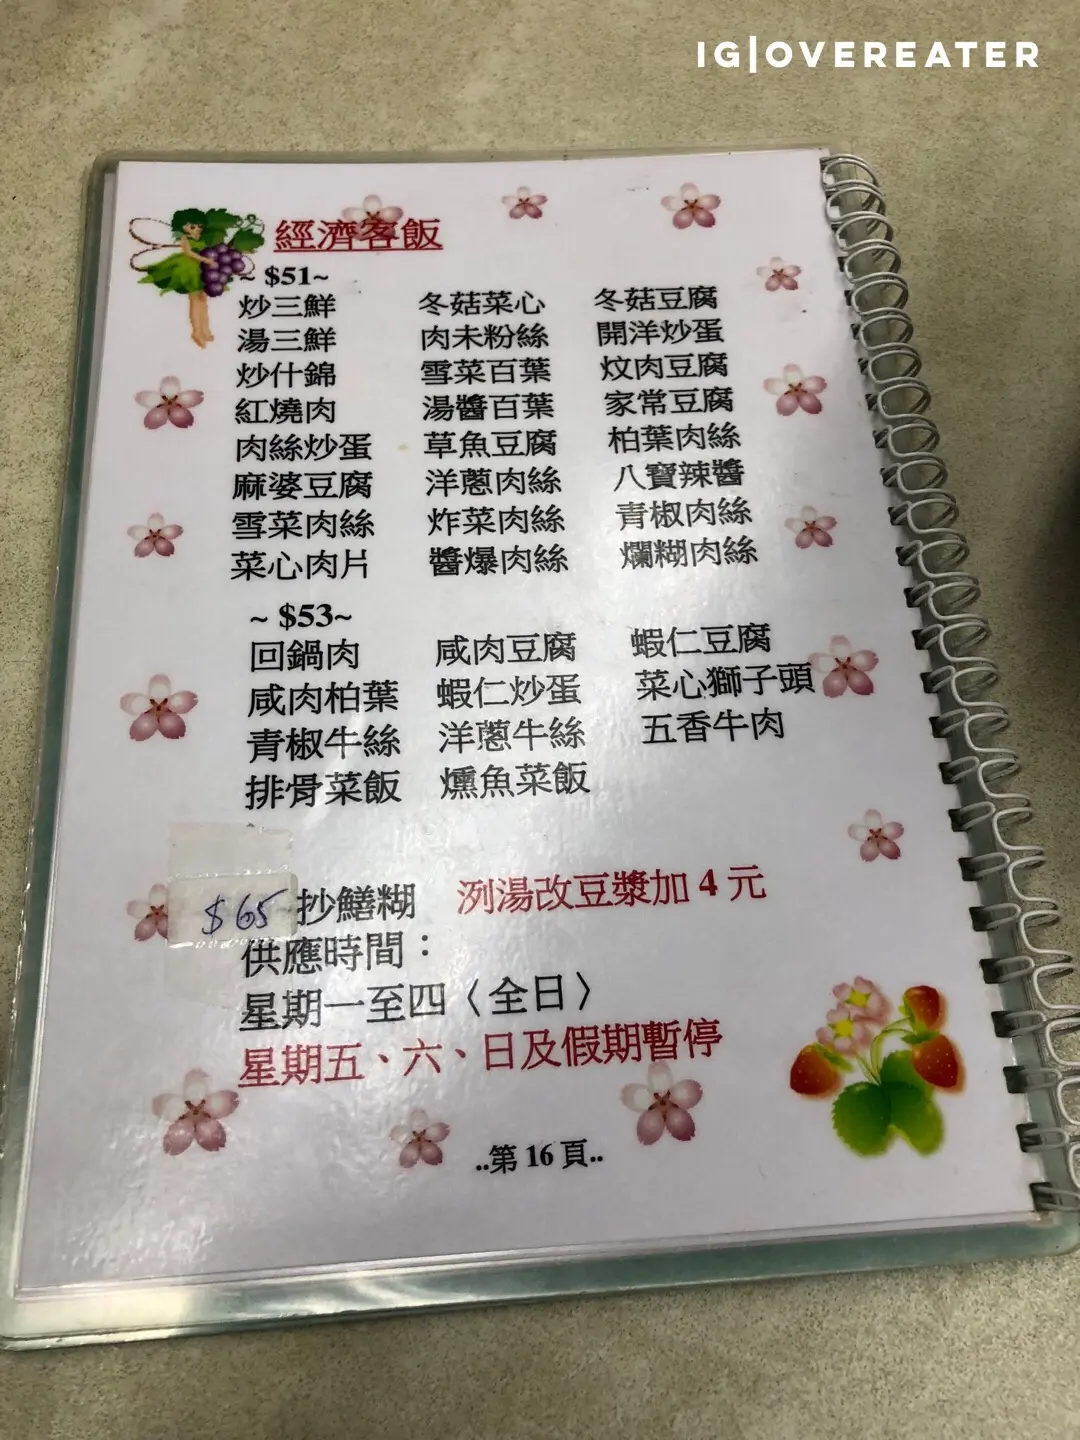 IG|OVEREATER
經濟客飯
~ $51~
炒三鮮 冬菇菜心 冬菇豆腐
湯三鮮 肉未粉絲 開洋炒蛋
炒什錦 雪菜百葉 炆肉豆腐
紅燒肉 湯醬百葉 家常豆腐
肉絲炒蛋 草魚豆腐 柏葉肉絲
麻婆豆腐 洋蔥肉絲 八寶辣醬
雪菜肉絲 炸菜肉絲 青椒肉絲
菜心肉片 醬爆肉絲 爛糊肉絲
~ $53~
回鍋肉 咸肉豆腐 蝦仁豆腐
咸肉柏葉 蝦仁炒蛋 菜心獅子頭
青椒牛絲 洋蔥牛絲 五香牛肉
排骨菜飯 燻魚菜飯
$65 抄鱔糊 洌湯改豆漿加 4 元
供應時間：
星期一至四〈全日〉
星期五、六、日及假期暫停
..第 16 頁..